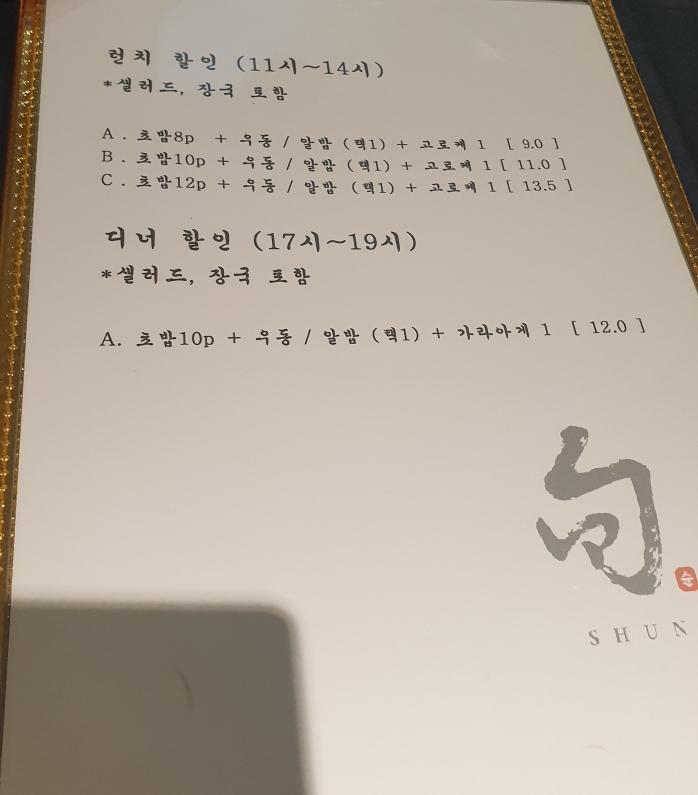 런치 할인 (11시~14시)
*샐러드, 장국 포함
A . 초밥8p + 우동 / 알밥 (택1) + 고로케 1 [ 9.0 ]
B . 초밥10p + 우동 / 알밥 (택1) + 고로케 1 [ 11.0 ]
C . 초밥12p + 우동 / 알밥 (택1) + 고로케 1 [ 13.5 ]
디너 할인 (17시~19시)
*샐러드, 장국 포함
A. 초밥10p + 우동 / 알밥 (택1) + 가라아게 1 [ 12.0 ]
旬
순
SHUN